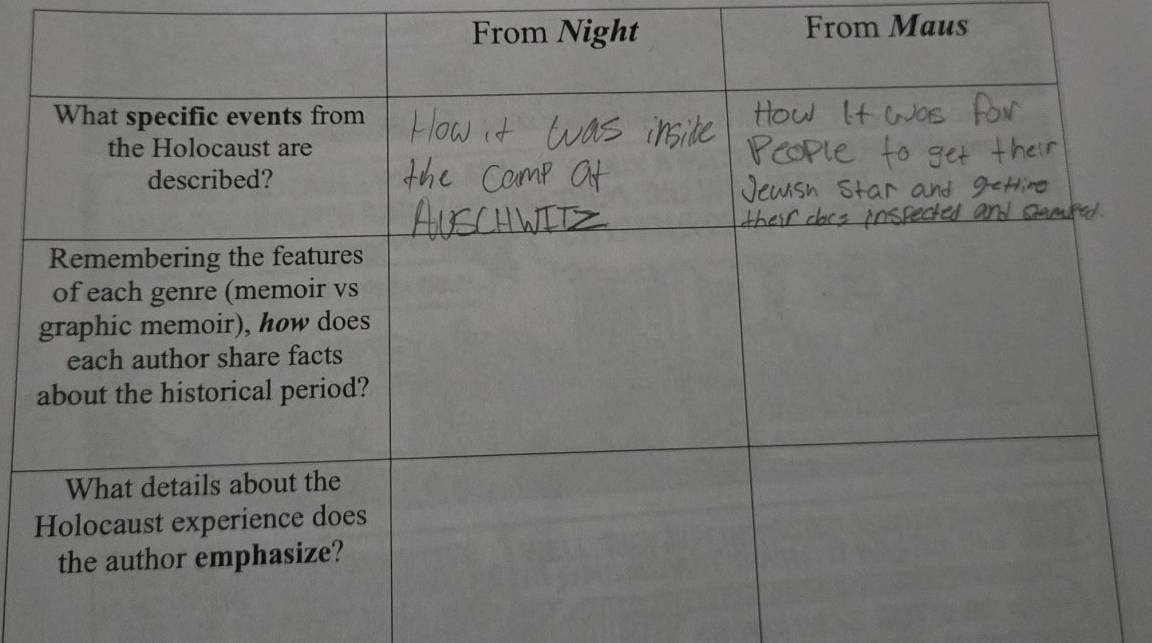 From Night
From Maus
What specific events from
the Holocaust are
described?
How it was inside
the camp at
AUSCHWITZ
How It was for
People to get their
Jewish Star and getting
their docs inspected and stamped.
Remembering the features
of each genre (memoir vs
graphic memoir), how does
each author share facts
about the historical period?
What details about the
Holocaust experience does
the author emphasize?